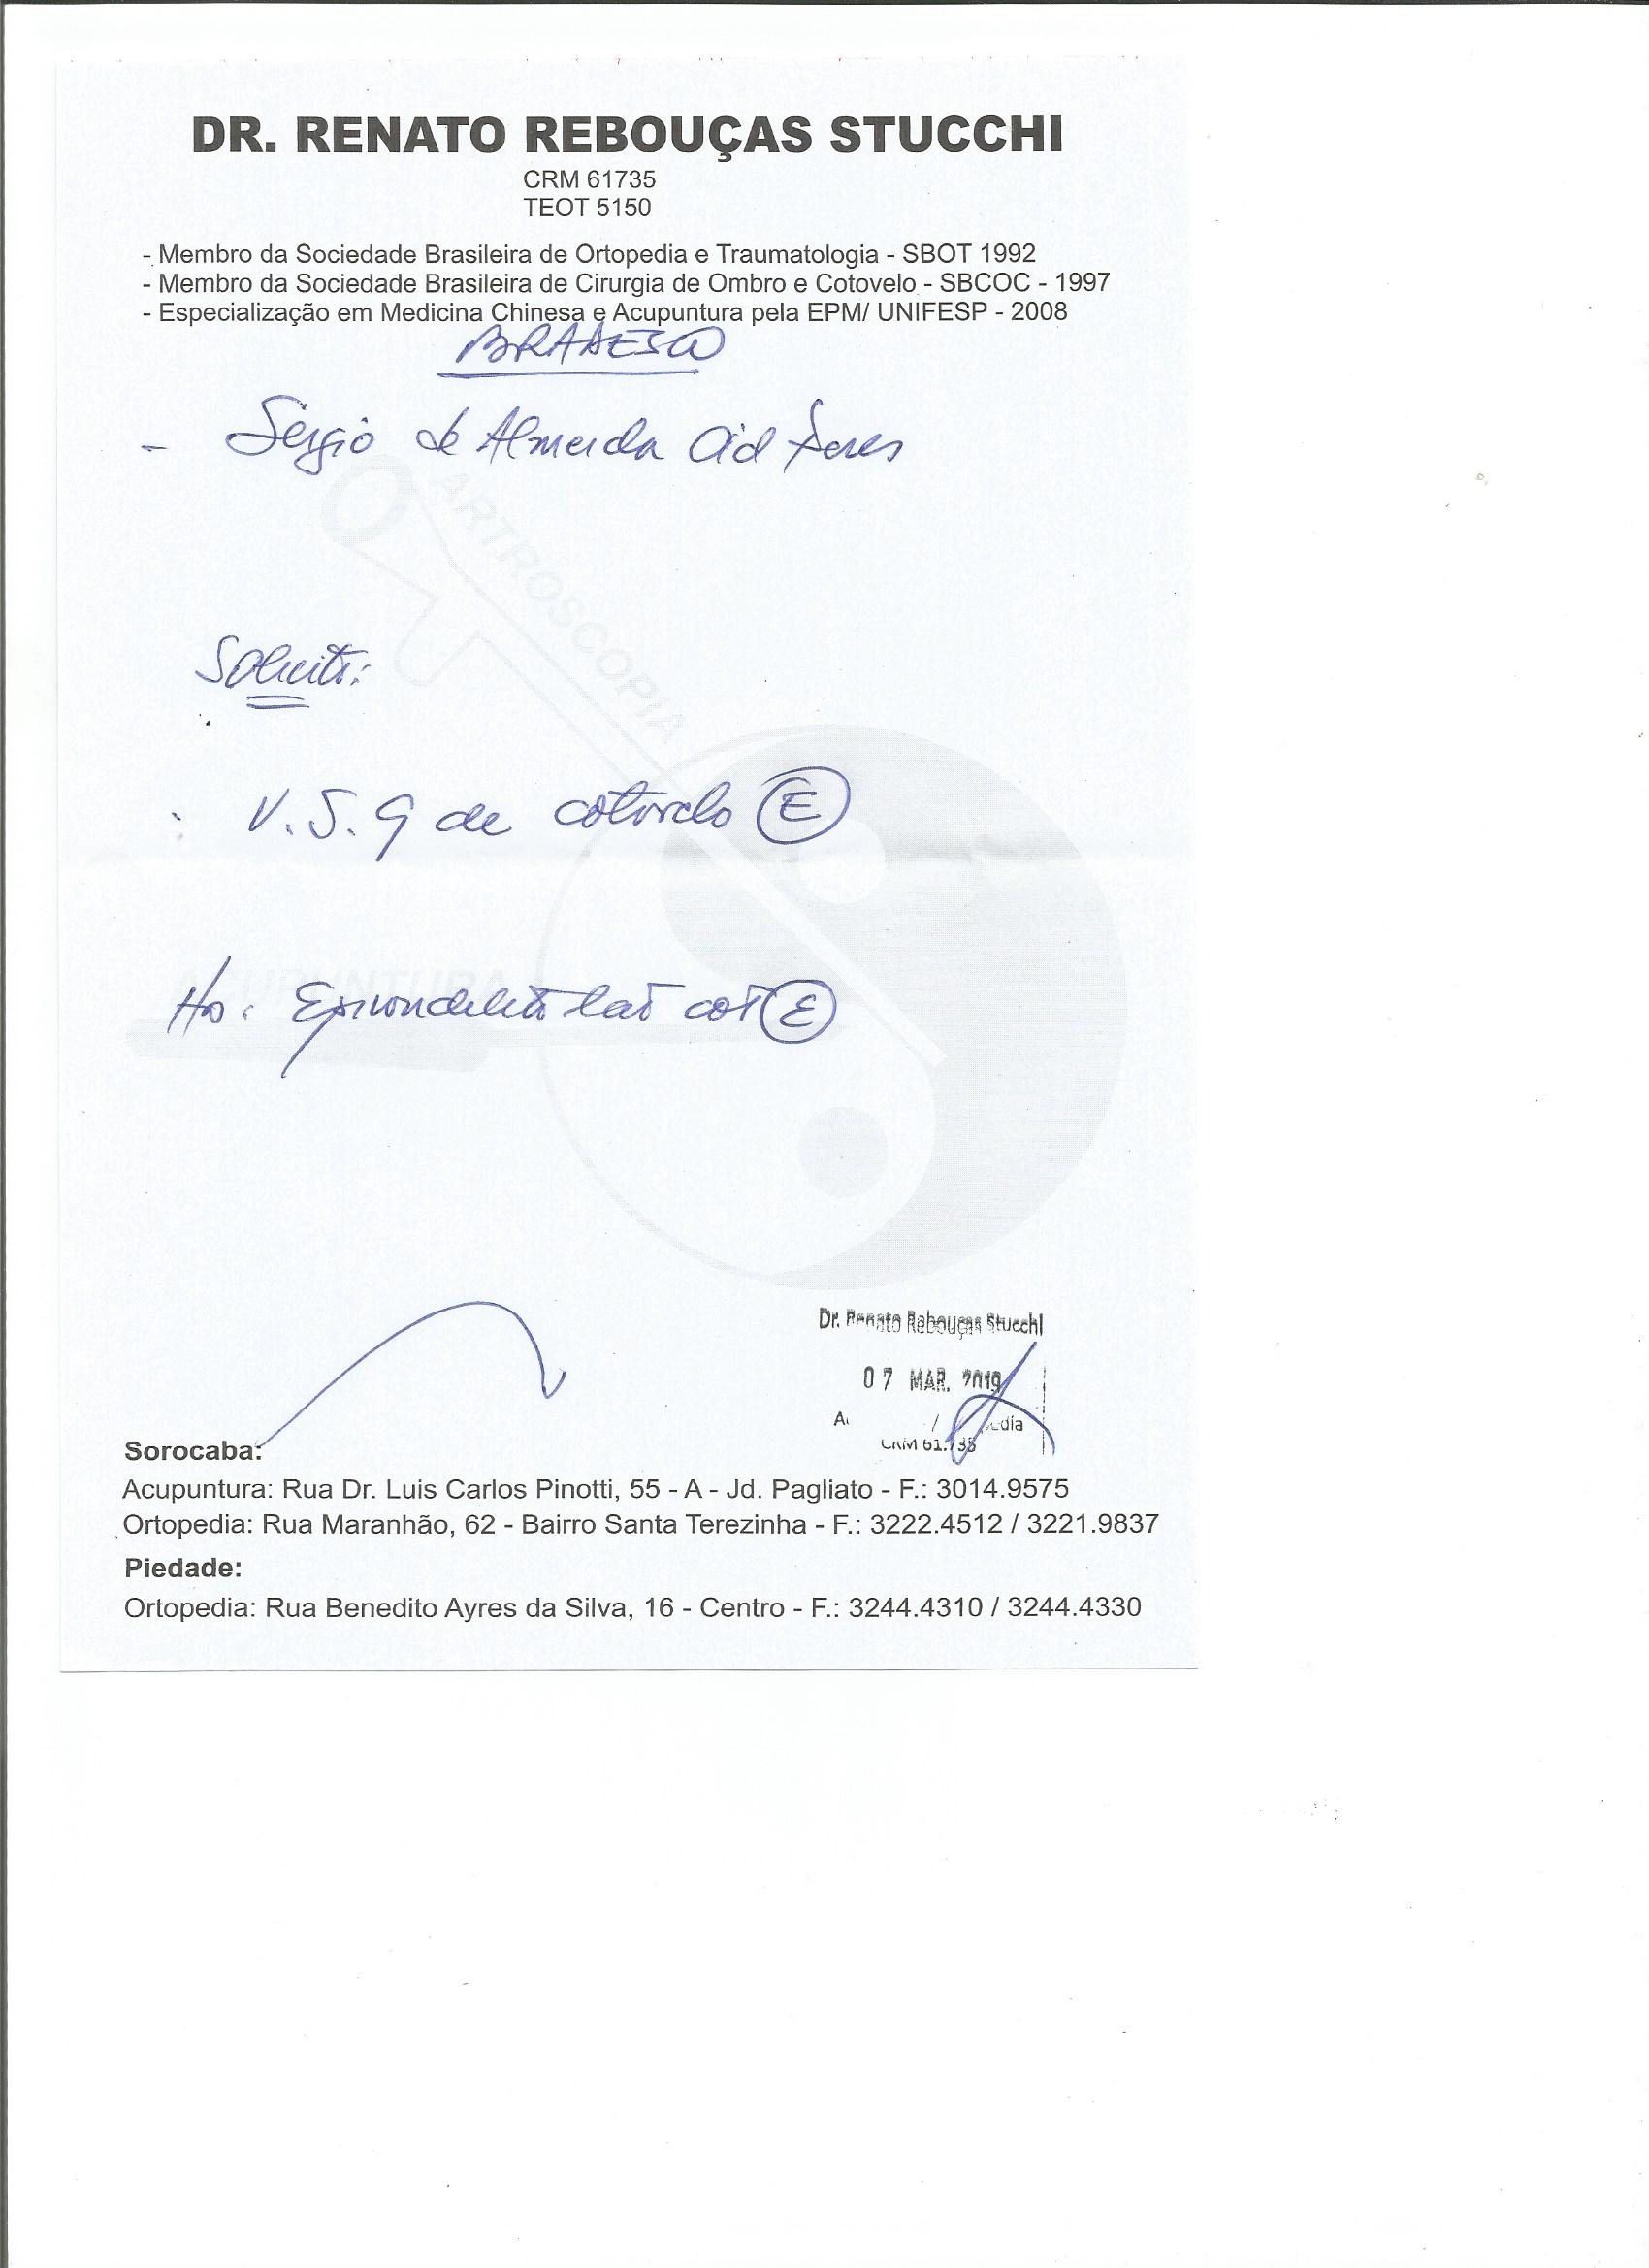 DR. RENATO REBOUÇAS STUCCHI
CRM 61735
TEOT 5150
- Membro da Sociedade Brasileira de Ortopedia e Traumatologia - SBOT 1992
- Membro da Sociedade Brasileira de Cirurgia de Ombro e Cotovelo - SBCOC - 1997
- Especialização em Medicina Chinesa e Acupuntura pela EPM/ UNIFESP - 2008
BRADESCO
- Sérgio de Almeida Cid
ARTROSCOPIA
Solicito:
de cotovelo E
ACUPUNTURA
Epicondilite lat cot E
Dr. Renato Rebouças Stucchi
07 MAR. 2019
CRM 61.735
Sorocaba:
Acupuntura: Rua Dr. Luis Carlos Pinotti, 55 - A - Jd. Pagliato - F.: 3014.9575
Ortopedia: Rua Maranhão, 62 - Bairro Santa Terezinha - F.: 3222.4512 / 3221.9837
Piedade:
Ortopedia: Rua Benedito Ayres da Silva, 16 - Centro - F.: 3244.4310 / 3244.4330